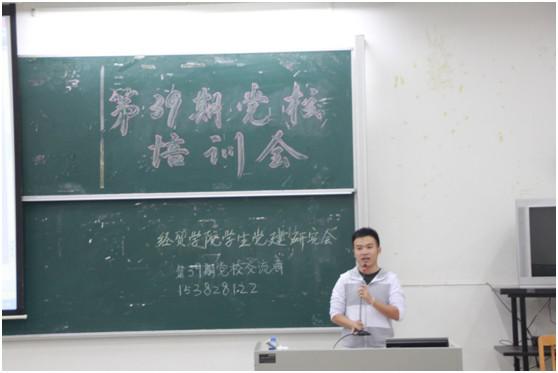 第39期党校
培训会
经贸学院学生党建研究会
第39期党校交流群
153828122